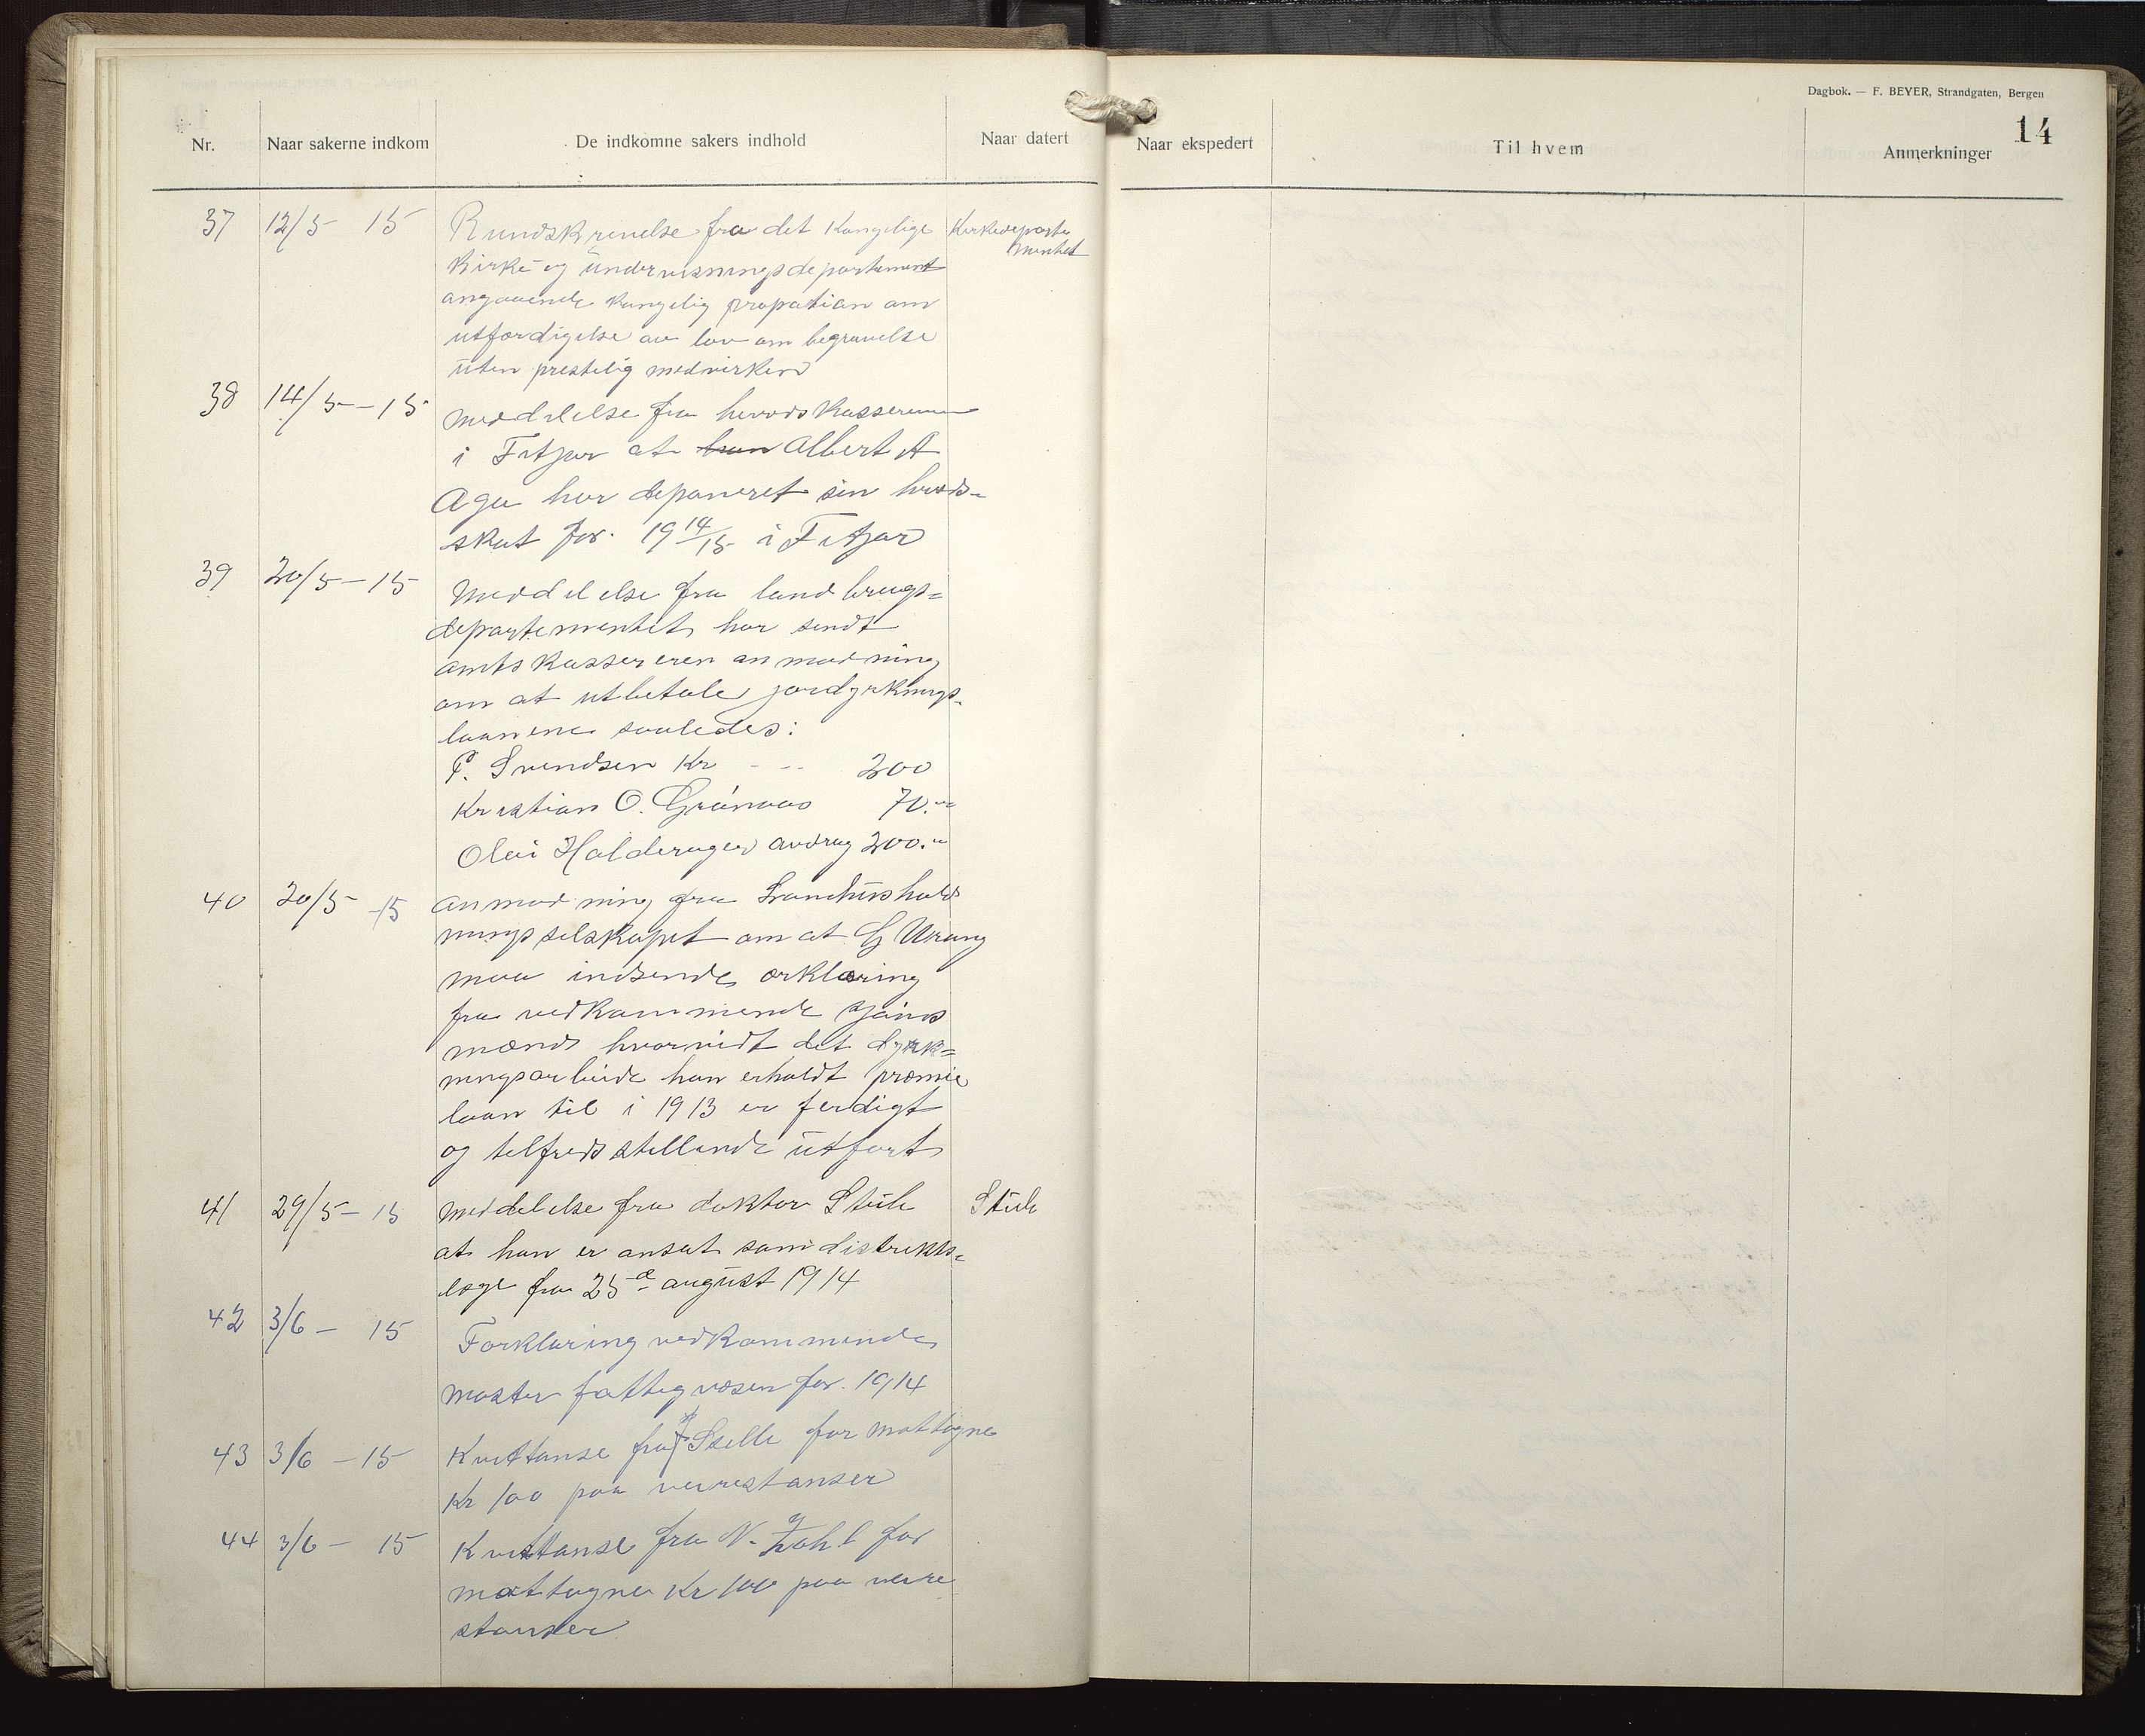 Dagbok. — F. BEYER, Strandgaten, Bergen
14
Nr. Naar sakerne indkom De indkomne sakers indhold Naar datert Naar ekspedert Til hvem Anmerkninger
37 12/5 15 Rundskrivelse fra det Kongelige Kirkedeparte
mentet
Kirke og undervisningsdepartement
angaaende kongelig propotion om
utfordigelse av lov om begravelse
uten prestelig medvirken
38 14/5 - 15 meddelelse fra herredskassereren
i Fitjar at han Albert A
Aga har deponeret sin herreds-
skat for 19 14/15 i Fitjar
39 20/5 - 15 Meddelelse fra landbrugs=
departementet har sendt
amtskassereren anmodning
om at utbetale jordyrknings-
laanene saaledes:
P. Svendsen Kr - - - 200
Kristian O. Grønaas 70.-
Olai Halderager avdrag 200.-
40 20/5 -15 anmodning fra Landhushold
ningsselskapet om at G Urang
maa indsende erklæring
fra vedkommende skjøns
mænd hvorvidt det dyrk=
ningsarbeide han erholdt præmie
laan til i 1913 er ferdigt
og tilfredsstillende utført
41 29/5 - 15 meddelelse fra doktor Stub Stub
at han er ansat som distrikts-
læge fra 25de august 1914
42 3/6 - 15 Forklaring vedkommende
Moster fattigvæsen for 1914
43 3/6 - 15 Kvittanse fra Stelle for mottagne
Kr 100 paa veirestanser
44 3/6 - 15 Kvittanse fra N. Zahl for
mottagne Kr 100 paa veire
stanser